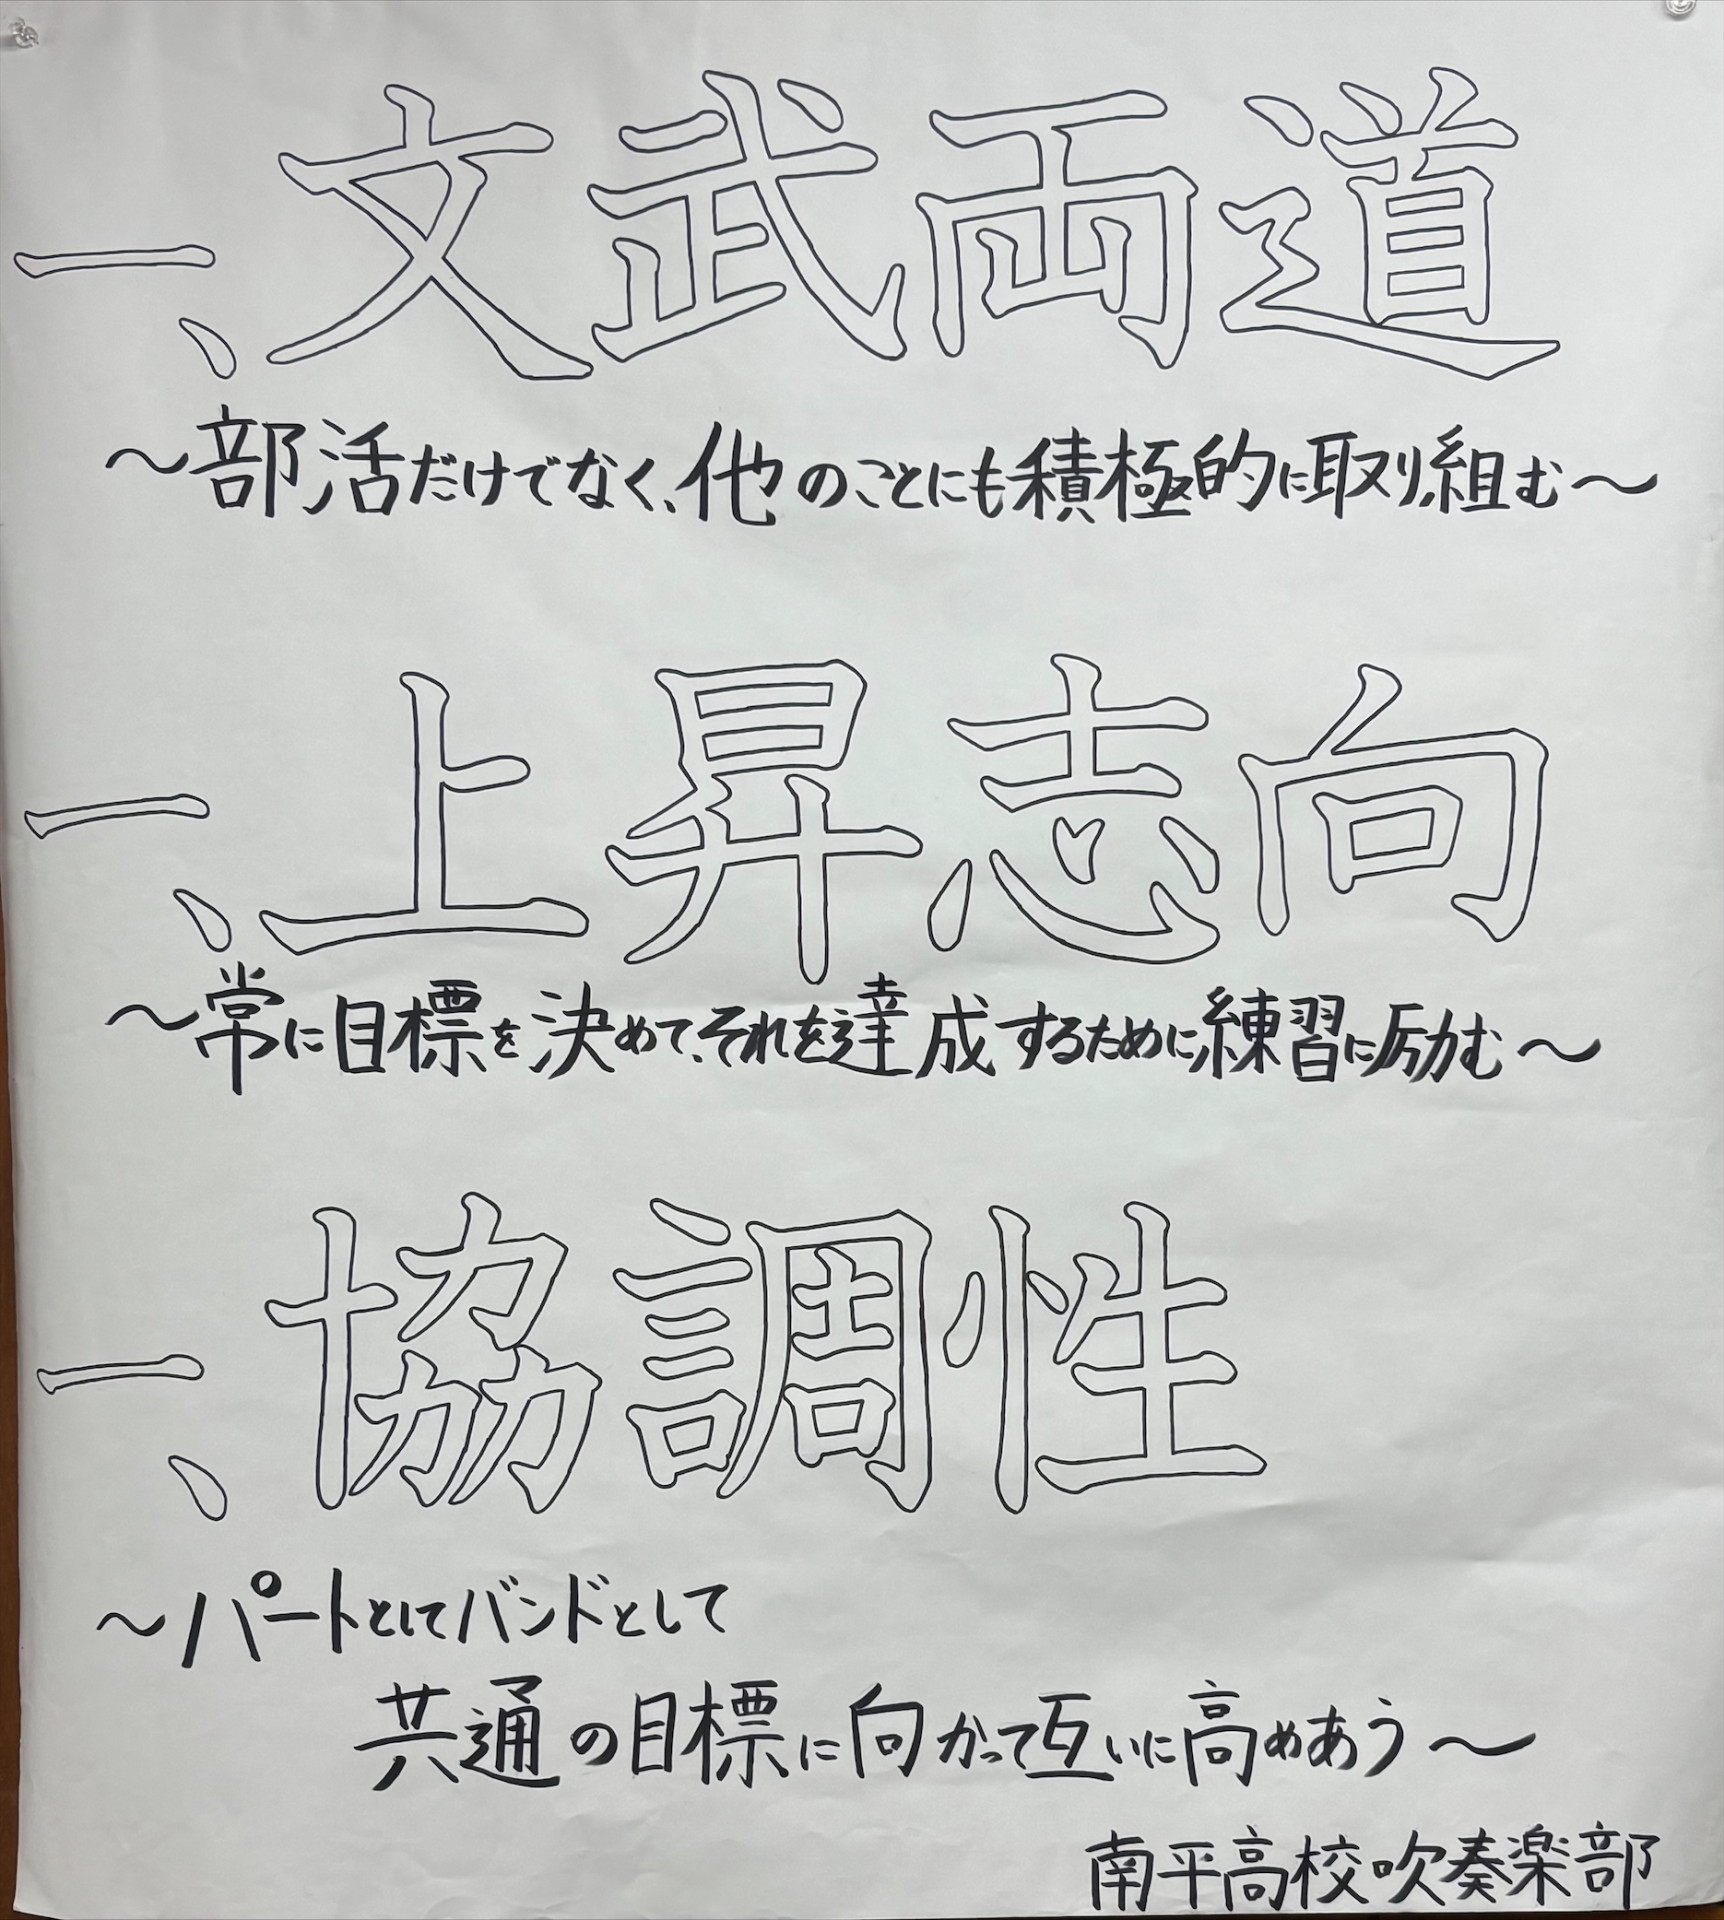 一、文武両道
～部活だけでなく、他のことにも積極的に取り組む～
一、上昇志向
～常に目標を決めて、それを達成するために練習に励む～
一、協調性
～パートとしてバンドとして
共通の目標に向かって互いに高めあう～
南平高校吹奏楽部